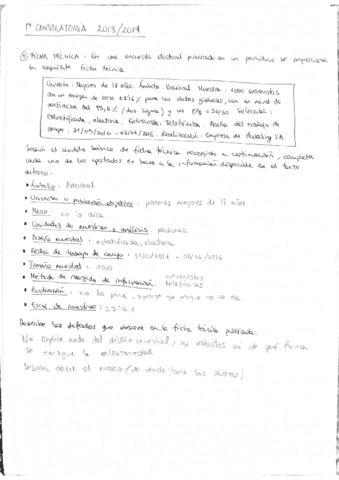 1ª CONVOCATORIA 2018/2019
① FICHA TÉCNICA: En una encuesta electoral publicada en un periódico se proporciona
la siguiente ficha técnica
Universo: Mayores de 18 años. Ámbito: Nacional. Muestra: 1000 entrevistas
con un margen de error ±3'16% para los datos globales, con un nivel de
confianza del 95,5% (dos sigma) y un P/Q = 50/50. Selección:
Estratificada, aleatoria. Entrevista: Telefónica. Fecha del trabajo de
campo: 31/05/2016 - 03/06/2016. Realización: Empresa de Marketing
Según el modelo básico de ficha técnica recogido a continuación, completa
cada uno de los apartados en base a la información disponible en el texto
anterior.
• Ámbito: Nacional
• Universo o población objetivo: personas mayores de 18 años
• Marco: no lo dice
• Unidades de muestreo y análisis: personas
• Diseño muestral: estratificada, aleatoria
• Fecha de trabajo de campo: 31/05/2016 - 03/06/2016
• Tamaño muestral: 1000
• Método de recogida de información: entrevistas
telefónicas
no lo pone, y no se da
• Error de muestreo: ±3'16%
Describe los defectos que observe en la ficha técnica publicada.
No explica nada del diseño muestral, ni estratos ni de qué forma
se consigue la aleatoriedad
Debería decir el marco (de donde toma los datos)